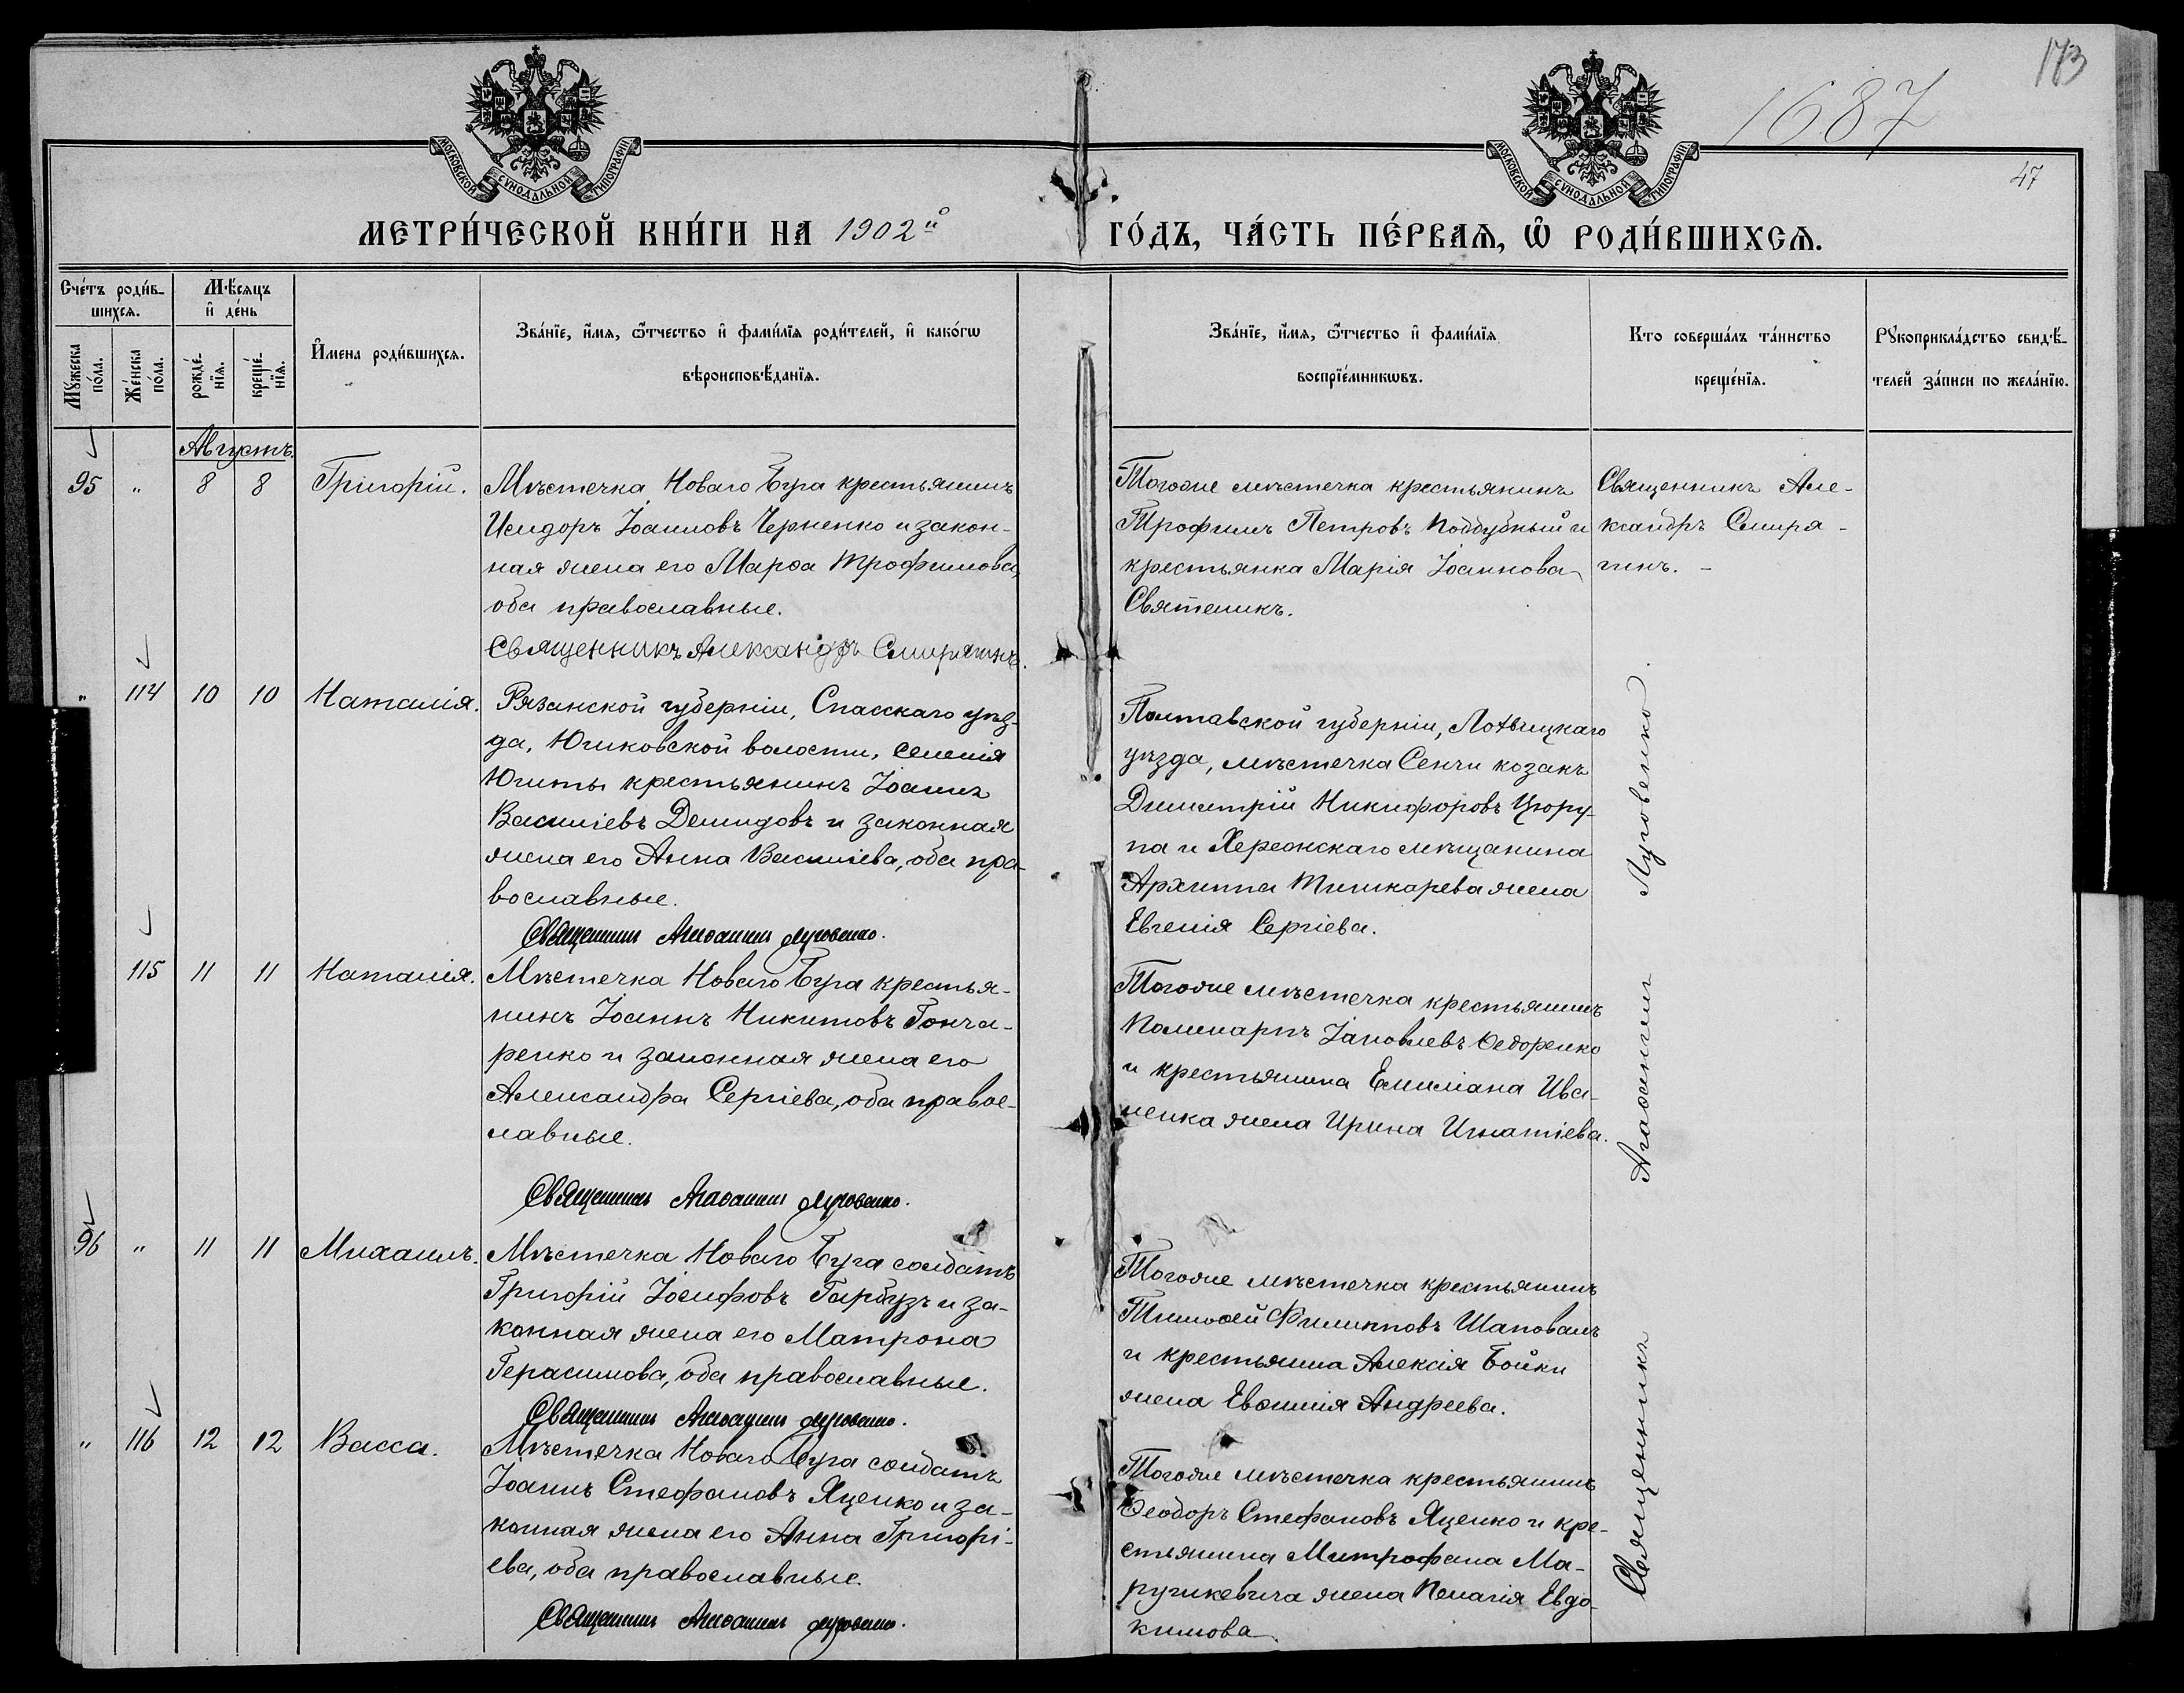 173
1687
47
МОСКОВСКОЙ СѴНОДАЛЬНОЙ ТИПОГРАФІИ
МОСКОВСКОЙ СѴНОДАЛЬНОЙ ТИПОГРАФІИ
МЕТРИ́ЧЕСКОЙ КНИ́ГИ НА 1902й ГО́ДЪ, ЧА́СТЬ ПЕ́РВАѦ, Ѡ҆ РОДИ́ВШИХСѦ.
Сче́тъ роди́в-
шихсѧ.
Мꙋ́жеска по́ла.
Же́нска по́ла.
Мѣ́сяцъ
и҆ де́нь
рожде́-
нїѧ.
креще́-
нїѧ.
И҆мена роди́вшихсѧ.
Зва́нїе, и҆́мѧ, ѻ҆́тчество и҆ фами́лїѧ роди́телей, и҆ како́гѡ
вѣроисповѣ́данїѧ.
Зва́нїе, и҆́мѧ, ѻ҆́тчество и҆ фами́лїѧ
воспрїе́мникѡвъ.
Кто соверша́лъ та́инство
креще́нїѧ.
Рꙋкоприкла́дство свидѣ́-
телей за́писи по жела́нїю.
Августъ.
95 " 8 8 Григорій.
Мѣстечка Новаго Буга крестьянинъ
Исидоръ Іоанновъ Черненко и закон-
ная жена его Марѳа Трофимова,
оба православные.
Священникъ Александръ Смирягинъ.
Тогоже мѣстечка крестьянинъ
Трофимъ Петровъ Поддубный и
крестьянка Марія Іоаннова
Святеникъ.
Священникъ Але-
ксандръ Смиря-
гинъ. -
" 114 10 10 Наталія.
Рязанской губерніи, Спасскаго уѣз-
да, Ижевской волости, селенія
крестьянинъ Іоаннъ
Василіевъ Демидовъ и законная
жена его Анна Василіева, оба пра-
вославные.
Священникъ Агаѳангелъ Луговенко.
Полтавской губерніи, Лохвицкаго
уѣзда, мѣстечка Сенчи козакъ
Димитрій Никифоровъ Цюру-
па и Херсонскаго мѣщанина
Архипа Тишкарева жена
Евгенія Сергіева.
115 11 11 Наталія.
Мѣстечка Новаго Буга крестья-
нинъ Іоаннъ Никитовъ Гонча-
ренко и законная жена его
Александра Сергіева, оба правос-
лавные.
Священникъ Агаѳангелъ Луговенко.
Тогоже мѣстечка крестьянинъ
Поликарпъ Іаковлевъ Ѳедоренко
и крестьянина Емиліана Ива-
ненка жена Ирина Игнатіева.
96 " 11 11 Михаилъ.
Мѣстечка Новаго Буга солдатъ
Григорій Іосифовъ Гарбузъ и за-
конная жена его Матрона
Герасимова, оба православные.
Священникъ Агаѳангелъ Луговенко.
Тогоже мѣстечка крестьянинъ
Тимоѳей Филипповъ Шаповалъ
и крестьянина Алексія Бойки
жена Евѳимія Андреева.
" 116 12 12 Васса.
Мѣстечка Новаго Буга солдатъ
Іоаннъ Стефановъ Яценко и за-
конная жена его Анна Григорі-
ева, оба православные.
Священникъ Агаѳангелъ Луговенко.
Тогоже мѣстечка крестьянинъ
Ѳеодоръ Стефановъ Яценко и кре-
стьянина Митрофана Ма-
рушкевича жена Пелагія Евдо-
кимова
Священникъ Агаѳангелъ Луговенко.